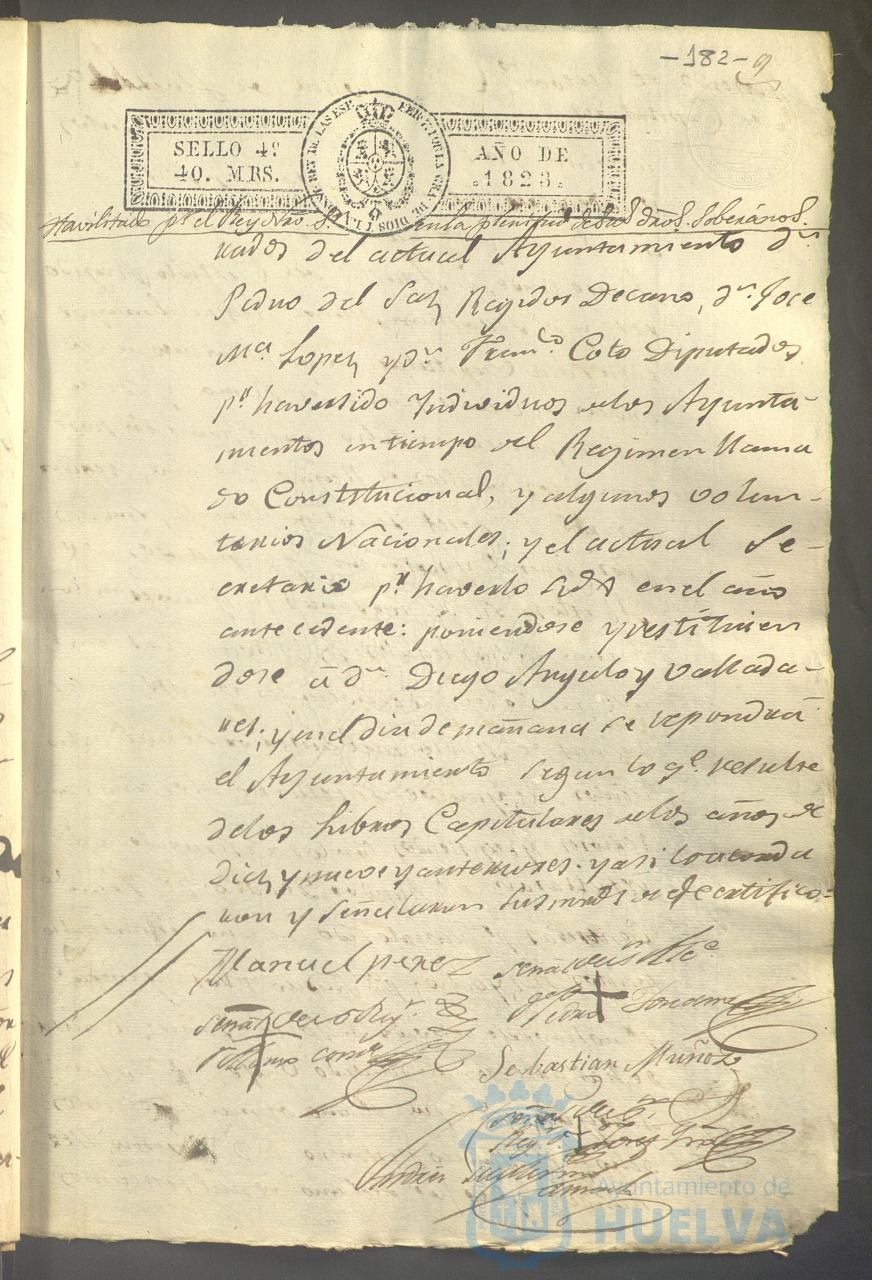 -182- 9
SELLO 4º
40. MRS.
FERN. 7. POR LA GRA. DE DIOS Y LA REY DE LAS ESP
AÑO DE
1823.
Havilitado pr. el Rey Nro. S. en la plenitud de sus dros. Soberános.
nados del actual Ayuntamiento dn.
Pedro del Saz Regidor Decano, dn. Jose
Ma. Lopez y dn. Franco. Coto Diputados
pr. haver sido Individuos de los Ayunta-
mientos en tiempo del Regimen llama
do Constitucional, y algunos volun-
tarios Nacionales; y el actual Se-
cretario pr. haverlo sido en el año
antecedente: poniendose y restituien
dose á dn. Diego Angulo y Vallada-
res; y en el dia de mañana se repondrá
el Ayuntamiento segun lo qe. resulte
de los Libros Capitulares de los años de
diez y nueve y anteriores. y asi lo acorda
ron y señalaron sus mrds. de qe. certifico=
Manuel perez señal del Sr. Alce.
Pedro
señal del Regr.
Sebastian Muñoz
señal del Sr.
Ayuntamiento de
HUELVA